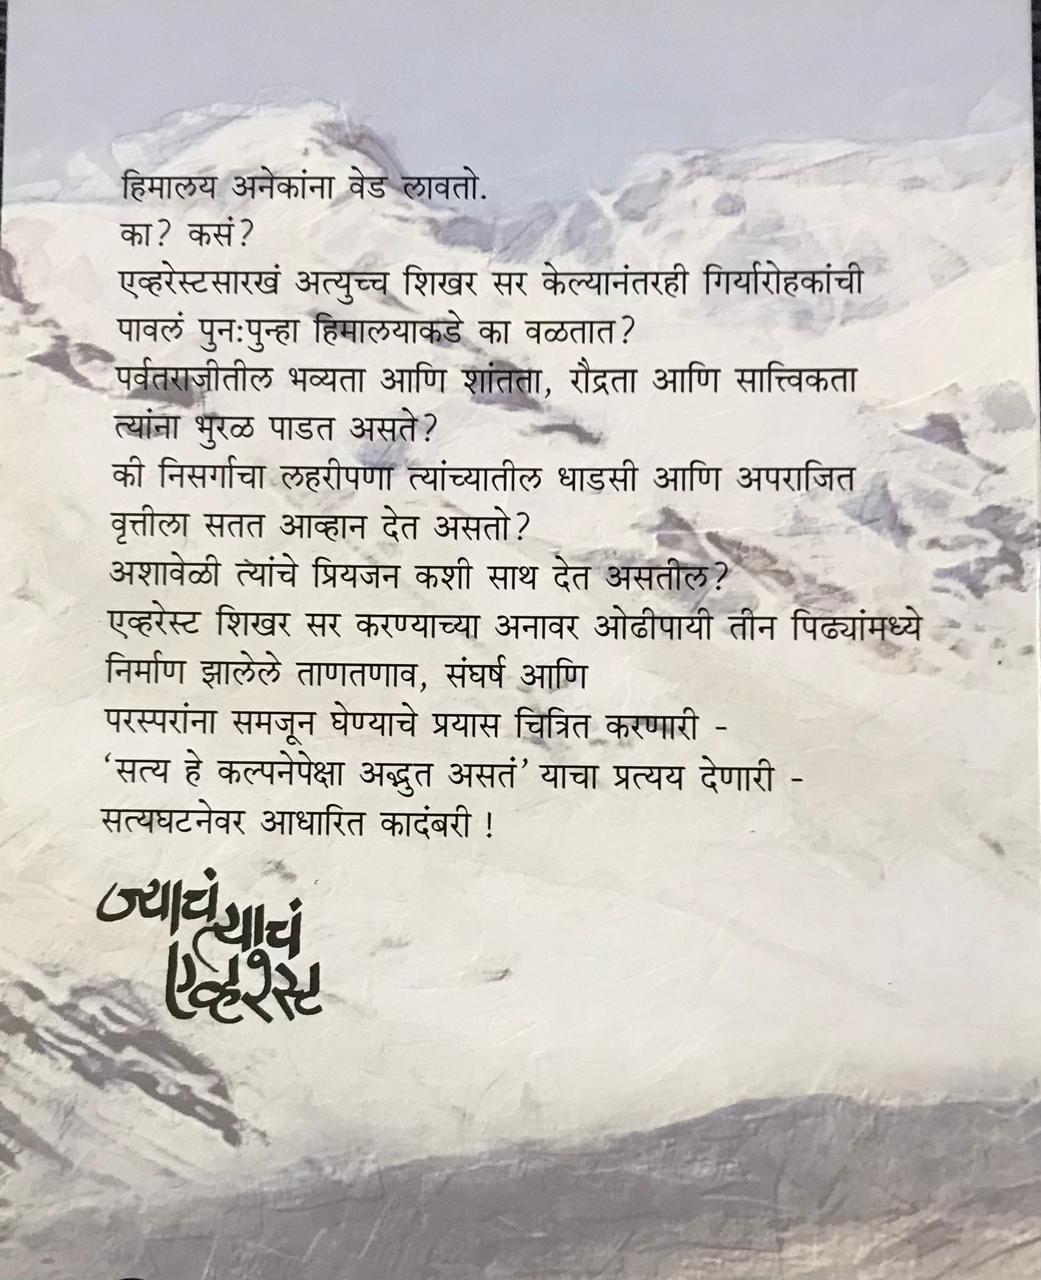 हिमालय अनेकांना वेड लावतो.
का? कसं?
एव्हरेस्टसारखं अत्युच्च शिखर सर केल्यानंतरही गिर्यारोहकांची
पावलं पुनःपुन्हा हिमालयाकडे का वळतात?
पर्वतराजीतील भव्यता आणि शांतता, रौद्रता आणि सात्त्विकता
त्यांना भुरळ पाडत असते?
की निसर्गाचा लहरीपणा त्यांच्यातील धाडसी आणि अपराजित
वृत्तीला सतत आव्हान देत असतो?
अशावेळी त्यांचे प्रियजन कशी साथ देत असतील?
एव्हरेस्ट शिखर सर करण्याच्या अनावर ओढीपायी तीन पिढ्यांमध्ये
निर्माण झालेले ताणतणाव, संघर्ष आणि
परस्परांना समजून घेण्याचे प्रयास चित्रित करणारी -
‘सत्य हे कल्पनेपेक्षा अद्भुत असतं’ याचा प्रत्यय देणारी -
सत्यघटनेवर आधारित कादंबरी !
ज्याचं
त्याचं
एव्हरेस्ट